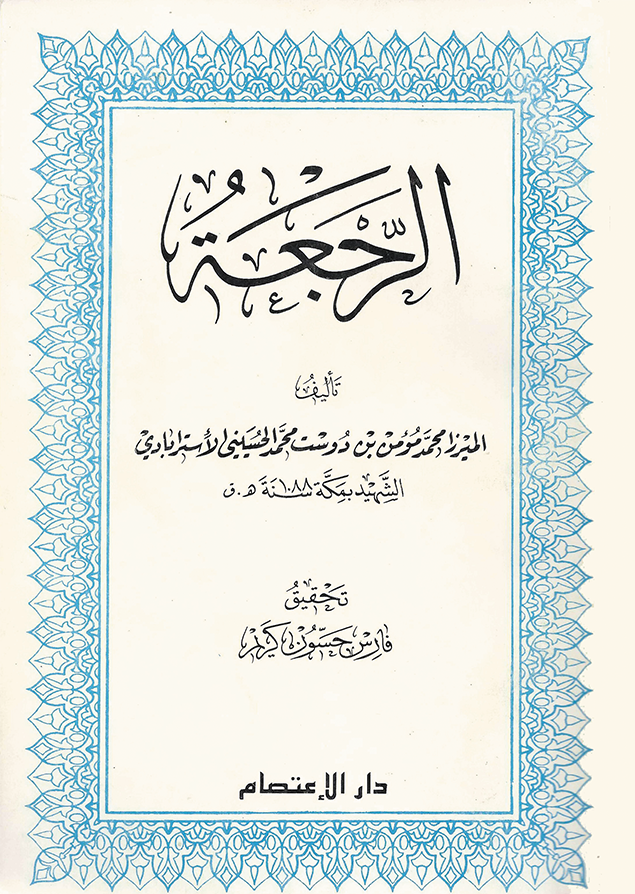 الرَّجْعَةُ
تأليفُ
الميرزا محمَّد مؤمن بن دوست محمَّد الحسيني الأسترابادي
الشَّهيد بمكَّة سنَة ١٠٨٨ هـ.ق
تحقيقُ
فارس حسّون كريم
دار الإعتصام